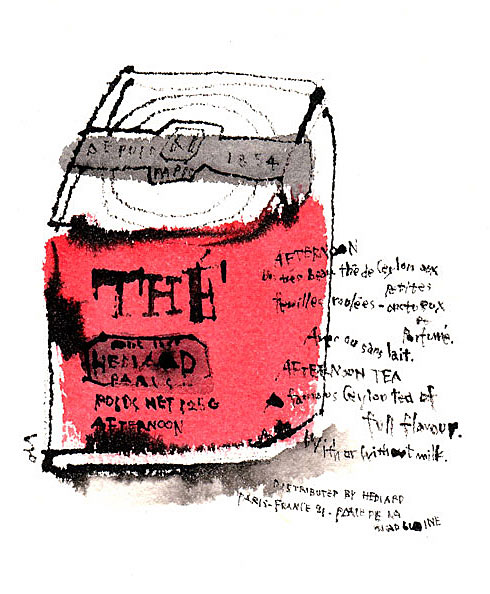 DEPUIS 1854
PARIS
THÉ
HEDIARD
PARIS
POIDS NET 125G
AFTERNOON
AFTERNOON
très beau thé de Ceylan aux
petites
feuilles roulées - onctueux
et
parfumé.
Avec ou sans lait.
AFTERNOON TEA
A famous Ceylon tea of
full flavour.
With or without milk.
DISTRIBUTED BY HEDIARD
PARIS - FRANCE 21 - PLACE DE LA
MADELEINE